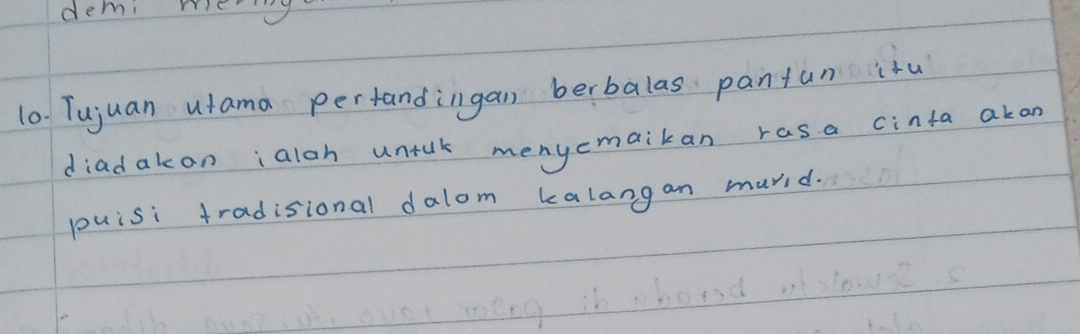 demi
10. Tujuan utama pertandingan berbalas pantun itu
diadakan ialah untuk menyemaikan rasa cinta akan
puisi tradisional dalam kalangan murid.